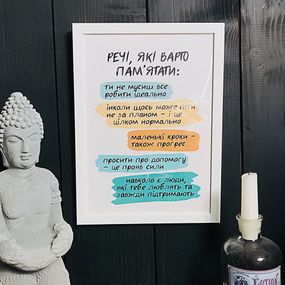 РЕЧІ, ЯКІ ВАРТО
ПАМ'ЯТАТИ:
ти не мусиш все
робити ідеально
інколи щось може піти
не за планом - і це
цілком нормально
маленькі кроки -
також прогрес
просити про допомогу
- це прояв сили
навколо є люди,
які тебе люблять та
завжди підтримають
LOTION